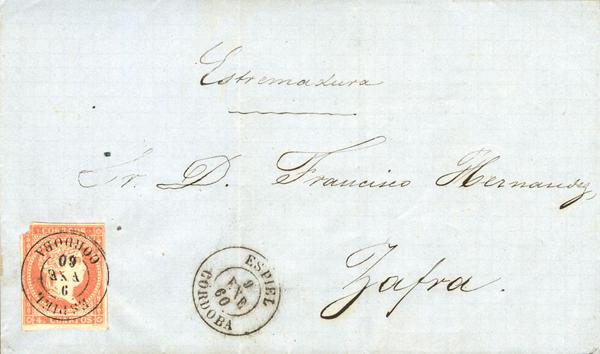 Estremadura
Sr. D. Francisco Hernandez,
Zafra.
CORREOS
4 CUARTOS
ESPIEL
9
ENE
60
CORDOBA
ESPIEL
9
ENE
60
CORDOBA